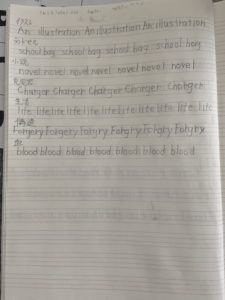 An illustration An illustration An illustration
school bag school bag school bag school bag
小说
novel novel novel novel novel novel novel
充电器
Charger Charger Charger Charger Charger
生活
life life life life life life life life life life life
伪造
Forgery Forgery Forgery Forgery Forgery Forgery
血
blood blood blood blood blood blood blood